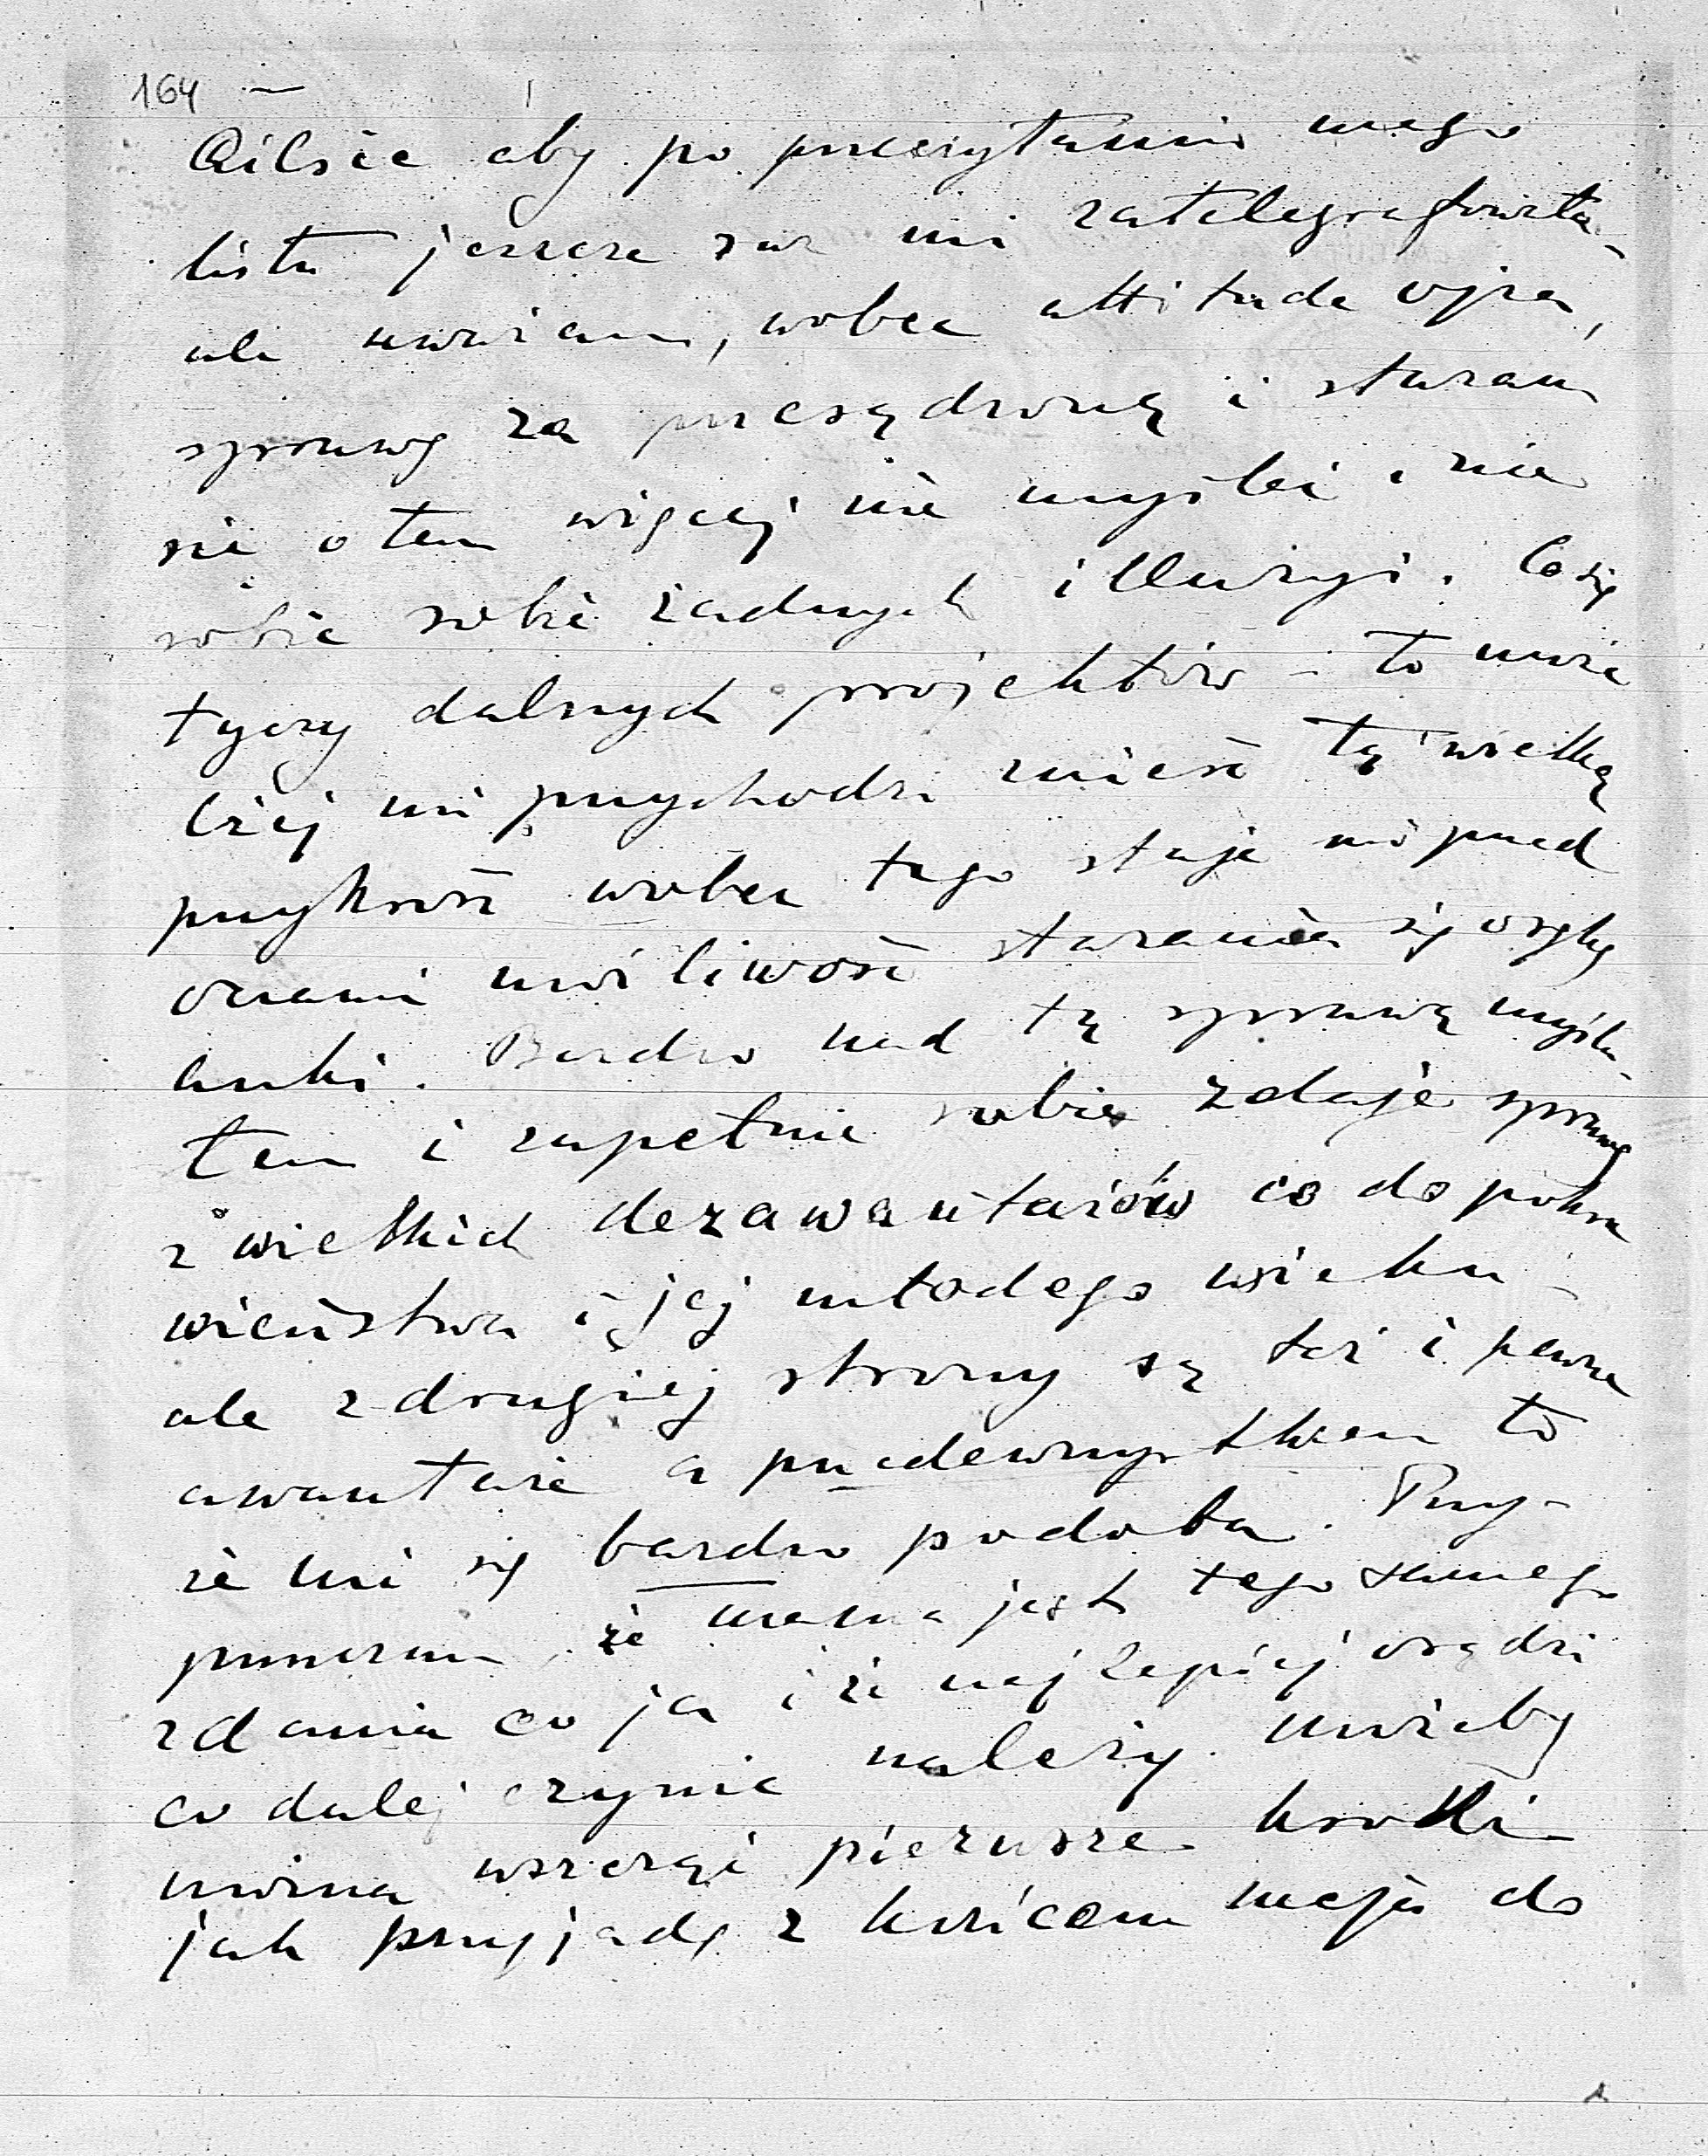 164 —
Ailsie aby po przeczytaniu mego
listu jeszcze raz mi zatelegrafowała,
ale uważam, wobec attitude ojca,
sprawę za przesądzoną i staram
się o tem więcej nie myśleć i nie
robić sobie żadnych illuzyi. Co się
tyczy dalszych projektów – to może
lżej mi przychodzi znieść tę wielką
przykrość wobec tego staje mi przed
oczami możliwość starania się o rękę
Anki. Bardzo nad tą sprawą myśla-
łem i zupełnie sobie zdaję sprawę
z wielkich dezawantażów co do pokre
wieństwa i jej młodego wieku –
ale z drugiej strony są też i pewne
awantaże a przedewszystkiem to
że mi się bardzo podoba. Przy-
puszczam, że mama jest tego samego
zdania co ja i że najlepiej osądzi
co dalej czynić należy. Możeby
można wszcząć pierwsze kroki
jak przyjadę z końcem maja do